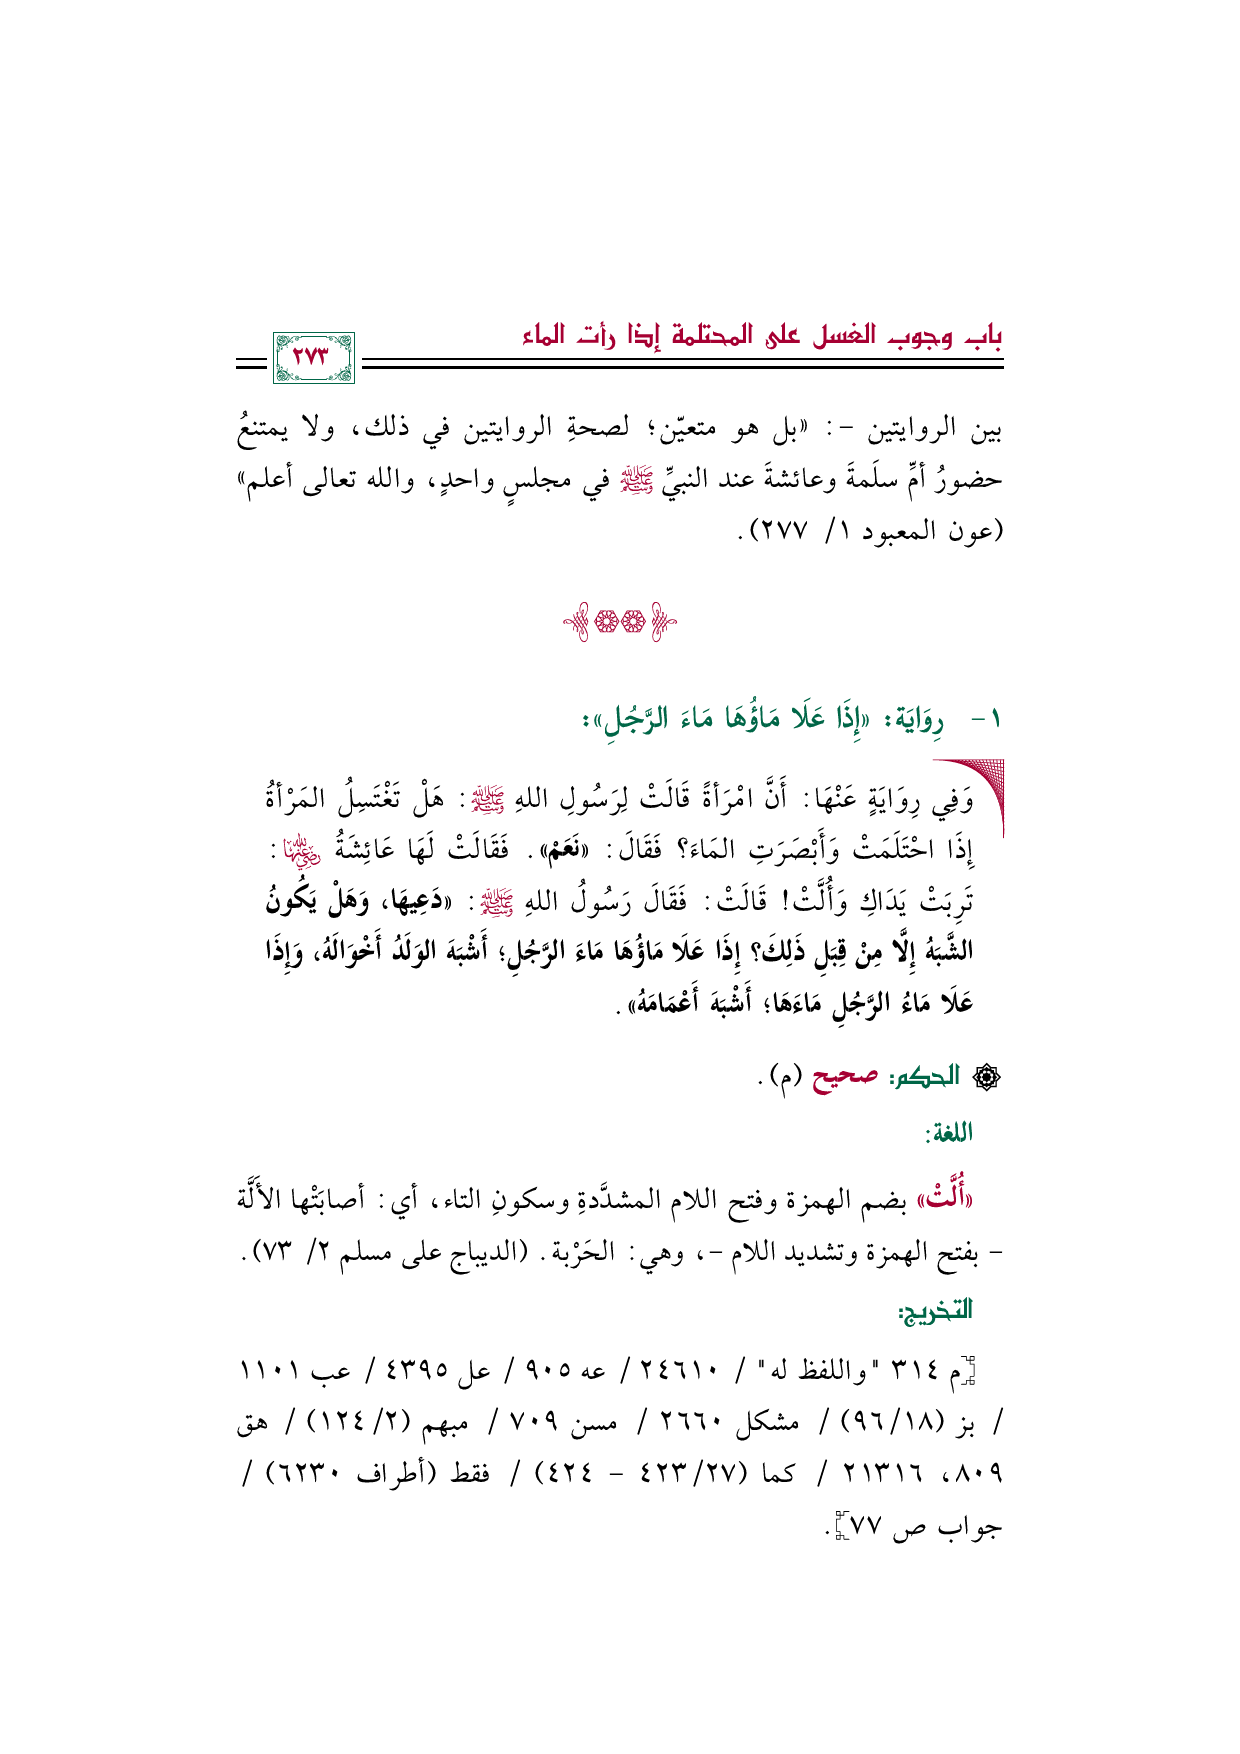 باب وجوب الغسل على المحتلمة إذا رأت الماء
٢٧٣
بين الروايتين –: «بل هو متعيّن؛ لصحةِ الروايتين في ذلك، ولا يمتنعُ
حضورُ أمِّ سلَمةَ وعائشةَ عند النبيِّ ﷺ في مجلسٍ واحدٍ، والله تعالى أعلم»
(عون المعبود ١/ ٢٧٧).
١– رِوَايَة: «إِذَا عَلَا مَاؤُهَا مَاءَ الرَّجُلِ»:
وَفِي رِوَايَةٍ عَنْهَا: أَنَّ امْرَأَةً قَالَتْ لِرَسُولِ اللهِ ﷺ: هَلْ تَغْتَسِلُ المَرْأَةُ
إِذَا احْتَلَمَتْ وَأَبْصَرَتِ المَاءَ؟ فَقَالَ: «نَعَمْ». فَقَالَتْ لَهَا عَائِشَةُ رضي الله عنها:
تَرِبَتْ يَدَاكِ وَأُلَّتْ! قَالَتْ: فَقَالَ رَسُولُ اللهِ ﷺ: «دَعِيهَا، وَهَلْ يَكُونُ
الشَّبَهُ إِلَّا مِنْ قِبَلِ ذَلِكَ؟ إِذَا عَلَا مَاؤُهَا مَاءَ الرَّجُلِ؛ أَشْبَهَ الوَلَدُ أَخْوَالَهُ، وَإِذَا
عَلَا مَاءُ الرَّجُلِ مَاءَهَا؛ أَشْبَهَ أَعْمَامَهُ».
الحكم: صحيح (م).
اللغة:
«أُلَّتْ» بضم الهمزة وفتح اللام المشدَّدةِ وسكونِ التاء، أي: أصابَتْها الأَلَّة
– بفتح الهمزة وتشديد اللام –، وهي: الحَرْبة. (الديباج على مسلم ٢/ ٧٣).
التخريج:
[م ٣١٤ "واللفظ له" / ٢٤٦١٠ / عه ٩٠٥ / عل ٤٣٩٥ / عب ١١٠١
/ بز (٩٦/١٨) / مشكل ٢٦٦٠ / مسن ٧٠٩ / مبهم (١٢٤/٢) / هق
٨٠٩، ٢١٣١٦ / كما (٤٢٣/٢٧ – ٤٢٤) / فقط (أطراف ٦٢٣٠) /
جواب ص ٧٧].